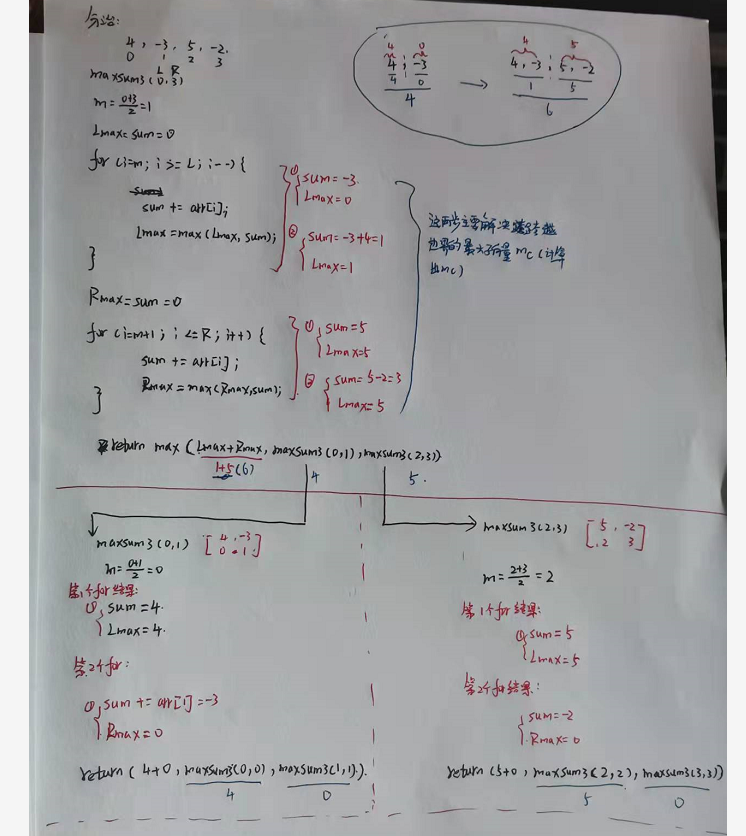 分治:
4, -3, 5, -2.
0 1 2 3
L R
maxsum3(0,3)
m = 0+3/2 = 1
Lmax = sum = 0
for (i=m; i >= L; i--) {
sum += arr[i];
Lmax = max(Lmax, sum);
}
① sum = -3
Lmax = 0
② sum = -3+4=1
Lmax = 1
Rmax = sum = 0
for (i=m+1; i <= R; i++) {
sum += arr[i];
Rmax = max(Rmax, sum);
}
① sum = 5
Lmax = 5
② sum = 5-2=3
Lmax = 5
这两步主要解决
的最大 mc (计算
出mc)
4 0
4 -3
4 0
4
→
4 5
4, -3 5, -2
1 5
6
return max (Lmax+Rmax, maxsum3(0,1), maxsum3(2,3))
1+5(6) 4 5.
maxsum3(0,1) [4, -3
0 1]
m = 0+1/2 = 0
第1个for结果:
① sum = 4.
Lmax = 4.
第2个for:
① sum += arr[1] = -3
Rmax = 0
return ( 4+0, maxsum3(0,0), maxsum3(1,1).).
4 0
maxsum3(2,3) [5, -2
2 3]
m = 2+3/2 = 2
第1个for结果:
① sum = 5
Lmax = 5
第2个for结果:
sum = -2
Rmax = 0
return (5+0, maxsum3(2,2), maxsum3(3,3))
5 0